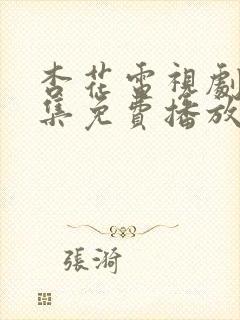 杏花雷視劇
集免費播放
張漪